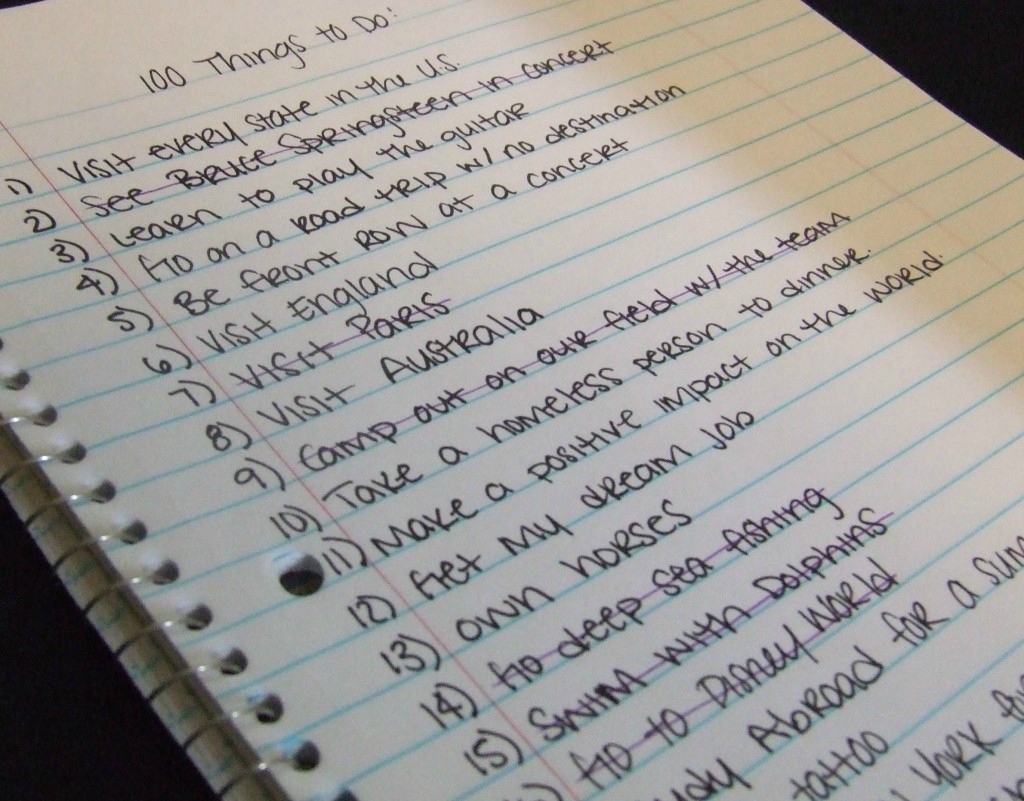 100 Things to Do:
1) Visit every state in the U.S.
2) See Bruce Springsteen in concert
3) Learn to play the guitar
4) Go on a road trip w/ no destination
5) Be front row at a concert
6) Visit England
7) Visit Paris
8) Visit Australia
9) Camp out on our field w/ the team
10) Take a homeless person to dinner.
11) Make a positive impact on the world.
12) Get my dream job
13) Own horses
14) Go deep sea fishing
15) Swim with Dolphins
Go to Disney World
Abroad for a
tattoo
York